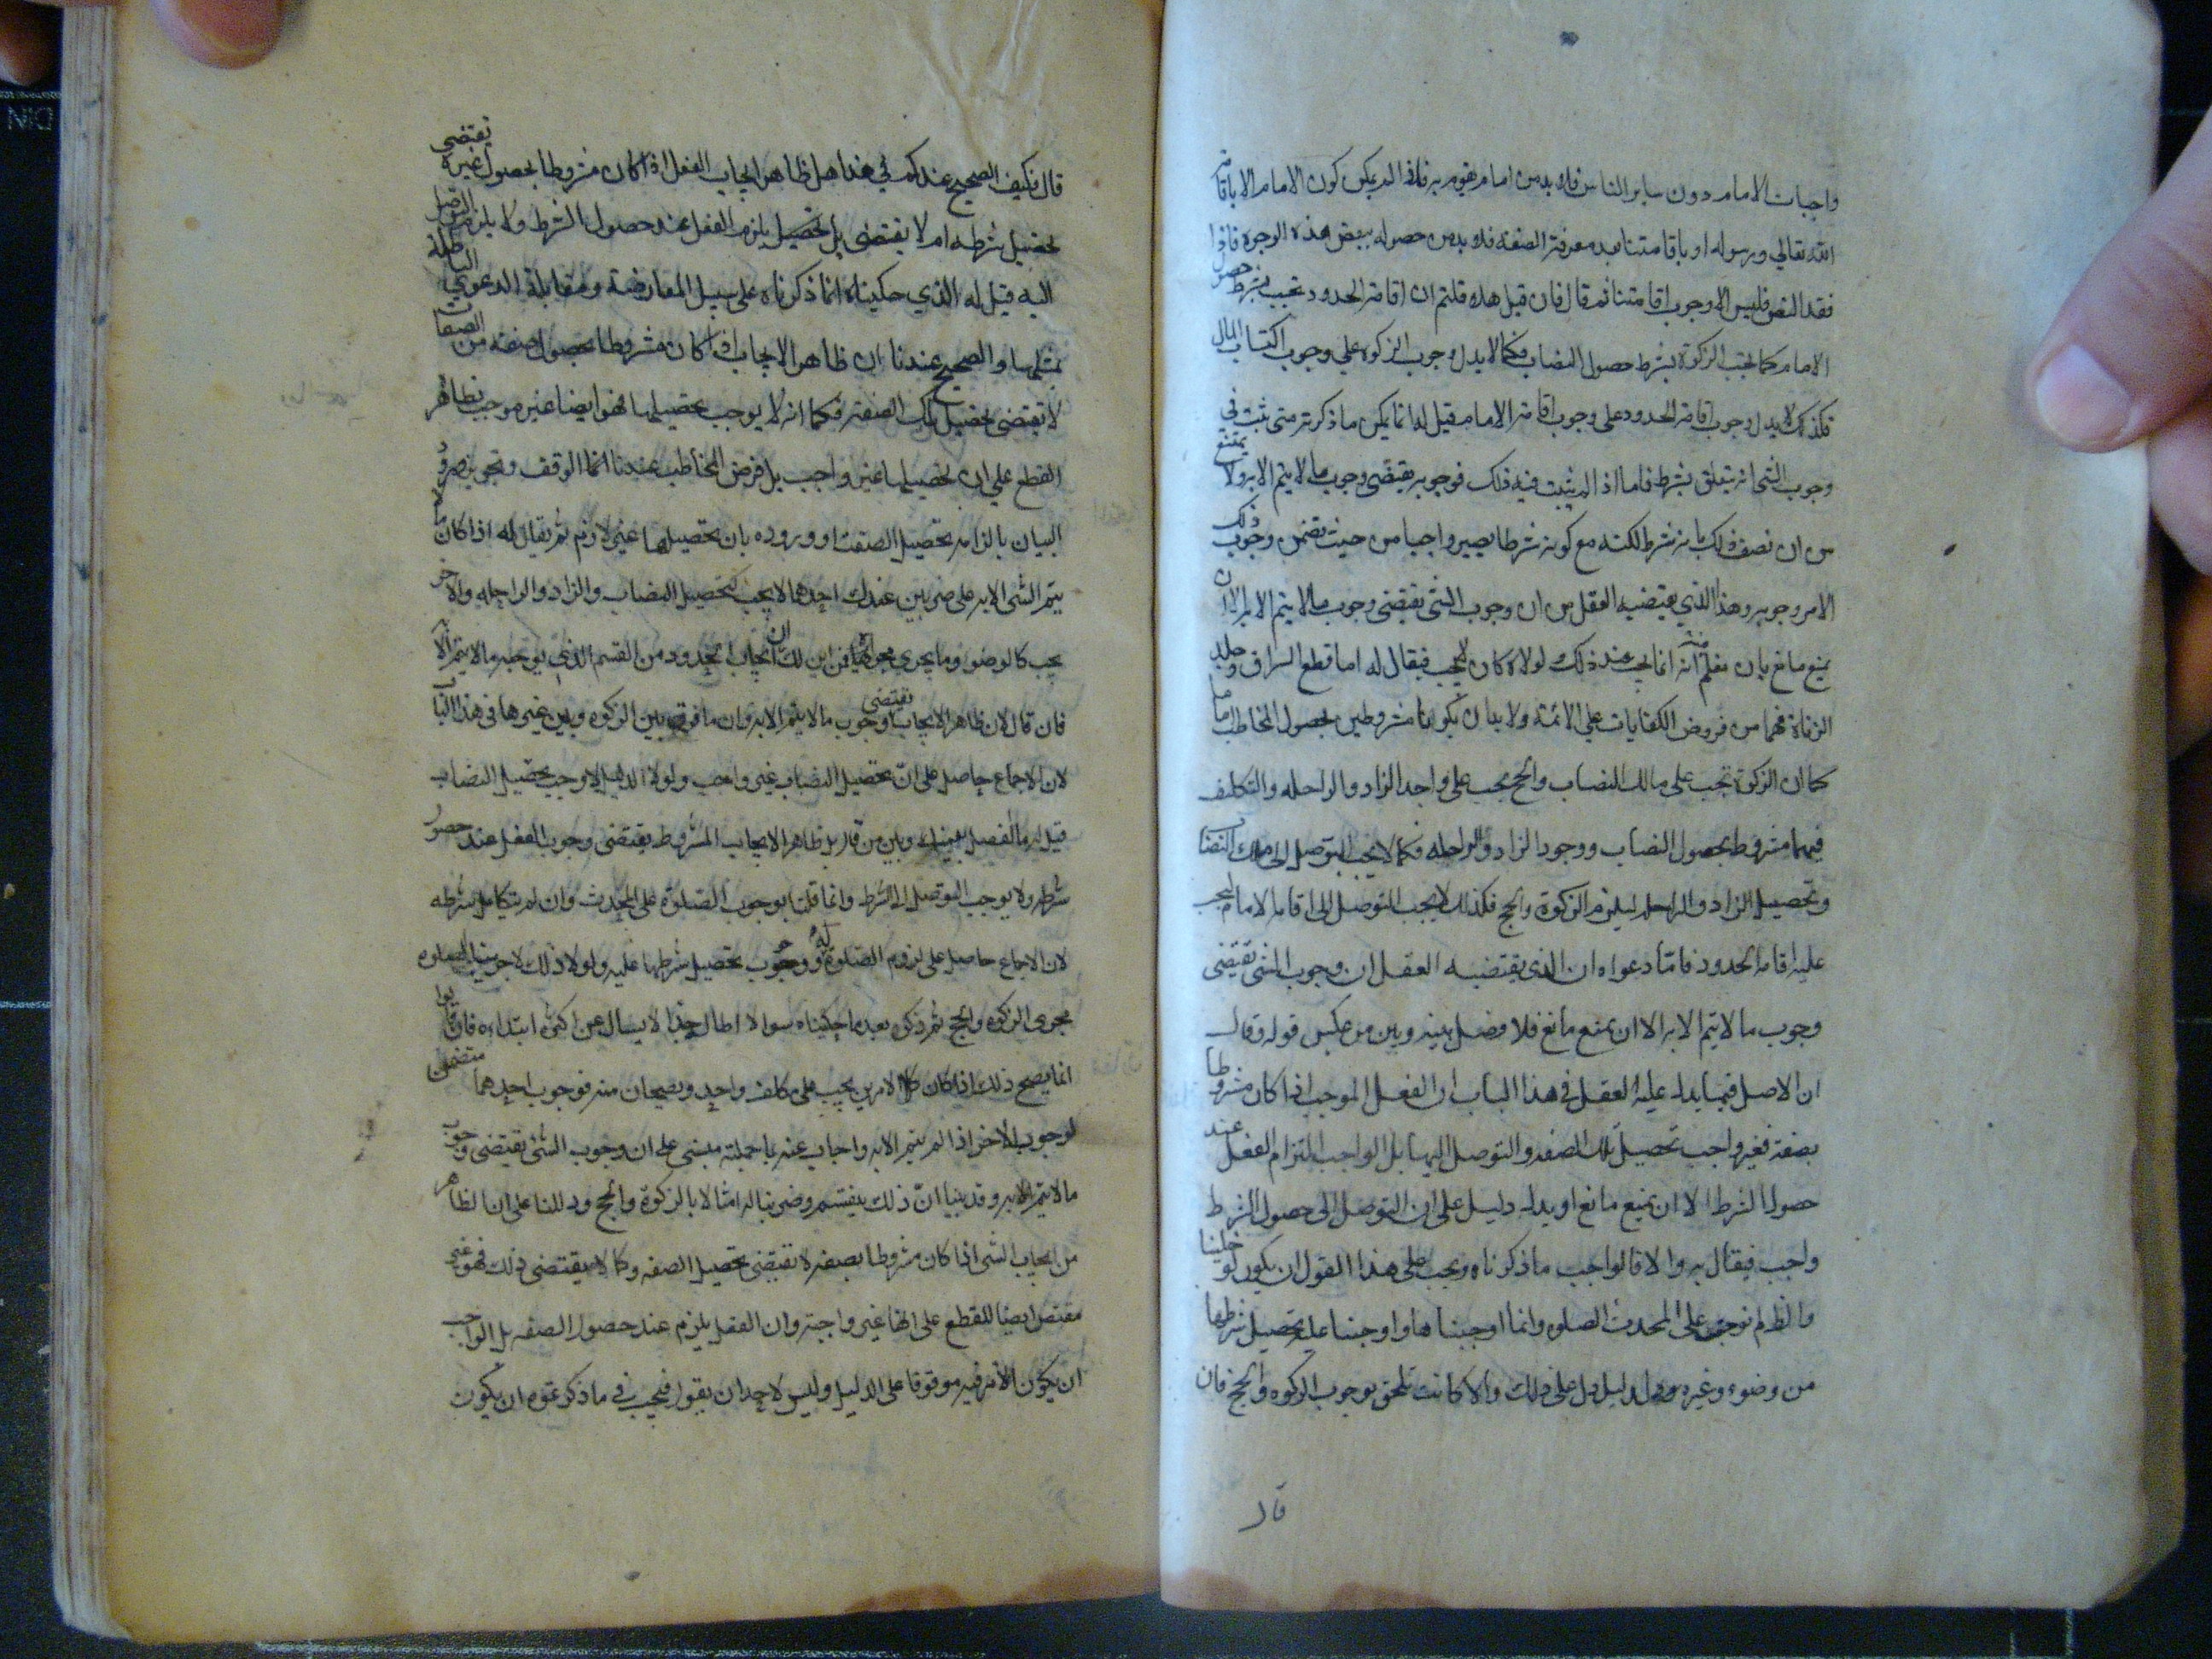 واجبات الامام دون ساير الناس فلا بد من امام يقوم به فاذا لم يمكن كون الامام الا باقامة
الله تعالي ورسوله او باقامتنا بعد معرفة الصفة فلا بد من حصوله ببعض هذه الوجوه فاذا
فقد النص فليس الا وجوب اقامتنا ثم قال فان قيل هلا قلتم ان اقامة الحدود تجب بشرط حصول
الامام كما تجب الزكوة بشرط حصول النصاب فكما لا يدل وجوب الزكوة علي وجوب اكتساب المال
فكذلك لا يدل وجوب اقامة الحدود على وجوب اقامة الامام قيل له انما يمكن ما ذكرته متى ثبت في
وجوب الشئ انه يتعلق بشرط فاما اذا لم يثبت فيه ذلك فوجوبه يقتضي وجوب ما لا يتم الا به ولا يمتنع
من ان نصف ذلك بانه شرط لكنه مع كونه شرطا يصير واجبا من حيث تضمن وجوب ذلك
الامر وجوبه وهذا الذي يقتضيه العقل من ان وجوب الشئ يقتضي وجوب ما لا يتم الا به الا ان
يمنع مانع بان نعلم منه انه انما يجب عند ذلك ولولاه كان لا يجب فيقال له اما قطع السراق وجلد
الزناة فهما من فروض الكفايات علي الائمة ولا بد ان يكونا مشروطين بحصول المخاطب بهما
كما ان الزكوة تجب على مالك النصاب والحج يجب على واجد الزاد والراحله والتكليف
فيهما مشروط بحصول النصاب ووجود الزاد والراحله فكما لا يجب التوصل الى ملك النصاب
وتحصيل الزاد والراحله ليلزم الزكوة والحج فكذلك لا يجب التوصل الى اقامة الامام ليجب
عليه اقامة الحدود فاما دعواه ان الذي يقتضيه العقل ان وجوب الشئ يقتضي
وجوب ما لا يتم الا به الا ان يمنع مانع فلا فصل بينه وبين من عكس قوله وقال
ان الاصل فيما يدل عليه العقل في هذا الباب ان الفعل الموجب اذا كان مشروطا
بصفة فغير واجب تحصيل تلك الصفه والتوصل اليها بل الواجب التزام الفعل عند
حصول الشرط الا ان يمنع مانع او يدل دليل على ان التوصل الى حصول الشرط
واجب فيقال به والا فالواجب ما ذكرناه ويجب على هذا القول ان يكون لو خلينا
والظاهر لم نوجب على المحدث الصلوه وانما اوجبناها واوجبنا عليه تحصيل شرطها
من وضوء وغيره بدليل دل على ذلك والا كانت تلحق بوجوب الزكوه والحج فان
قال
قال فكيف الصحيح عندكم في هذا هل ظاهر ايجاب الفعل اذا كان مشروطا بحصول غيره يقتضي
تحصيل شرطه ام لا يقتضي بل يلزم الفعل عند حصول الشرط ولا يلزم التوصل
اليه قيل له الذي حكيناه انما ذكرناه على سبيل المعارضة ومقابلة الدعوي الباطلة
بمثلها والصحيح عندنا ان ظاهر الايجاب اذا كان مشروطا بحصول صفة من الصفات
لا تقتضي تحصيل تلك الصفة فكما انه لا يوجب تحصيلها فهو ايضا غير موجب بظاهره
القطع علي ان تحصيلها غير واجب بل فرض المخاطب عندنا انما الوقف وتجويز ورود
البيان بالزامه تحصيل الصفة او وروده بان تحصيلها غير لازم ثم يقال له اذا كان ما لا
يتم الشئ الا به على ضربين عندك احدهما لا يجب كتحصيل النصاب والزاد والراحله والاخر
يجب كالوضوء وما يجري مجراه فمن اين لك ان ايجاب الحدود من القسم الذي يوجب ما لا يتم الا به
فان قال لان ظاهر الايجاب يقتضي وجوب ما لا يتم الا به وان ما فرق بين الزكوه وبين غيرها في هذا الباب
لان الاجماع حاصل على ان تحصيل النصاب غير واجب ولولا الدليل لاوجب تحصيل النصاب
قيل له ما الفصل بينك وبين من قال بل ظاهر الايجاب المشروط يقتضي وجوب الفعل عند حصول
شرطه ولا يوجب التوصل الى الشرط وانما قلنا بوجوب الصلوة على المحدث وان لم يتكامل شرطه
لان الاجماع حاصل على لزوم الصلوة له ووجوب تحصيل شرطها عليه ولولا ذلك لاجرينا الصلوه
مجرى الزكوه والحج ثم ذكر بعد ما حكيناه سوالا اطال جدا لا يسال عن اكثره ابتداءه فان قالوا
انما يصح ذلك اذا كان كلا الامرين يجب على مكلف واحد ويصحان منه فوجوب احدهما متضمن
لوجوب الاخر اذا لم يتم الا به واجاب عنه بما جملته مبني على ان وجوب الشئ يقتضي وجوب
ما لا يتم الا به وقد بينا ان ذلك ينقسم وضربنا له امثالا بالزكوة والحج ودللنا على ان الظاهر
من ايجاب الشئ اذا كان مشروطا بصفة لا تقتضي تحصيل الصفه وكما لا يقتضي ذلك فهو غير
مقتض ايضا للقطع على انها غير واجبة وان الفعل يلزم عند حصول الصفه بل الواجب
ان يكون الامر فيه موقوفا على الدليل وليس لاحد ان يقول فيجب في ما ذكرتموه ان يكون